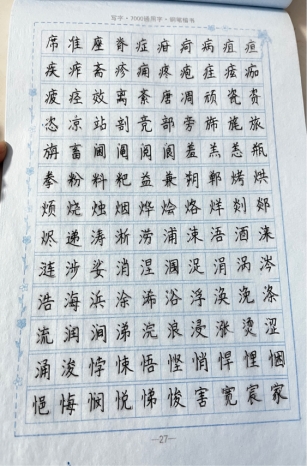 写字·7000通用字·钢笔楷书
席准座脊症疳疴病疽疸
疾痄斋疹痈疼疱痊痃痂
疲痉效离紊唐凋颃瓷资
恣凉站剖竞部旁旆旄旅
旃畜阃阄阅阆羞羔恙瓶
拳粉料粑益兼朔郸烤烘
烦烧烛烟烨烩烙烊剡郯
烬递涛浙涝浦涑浯酒涞
涟涉娑消涅涠浞涓涡涔
浩海浜涂浠浴浮涣浼涤
流润涧涕浣浪浸涨烫涩
涌浚悖悚悟悭悄悍悝悃
悒悔悯悦悌悛害宽宸家
—27—